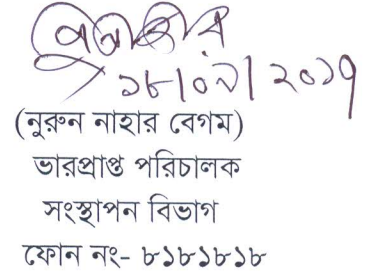 ১৮।০৭।২০১৭
(নুরুন নাহার বেগম)
ভারপ্রাপ্ত পরিচালক
সংস্থাপন বিভাগ
ফোন নং- ৮১৮১৮১৮